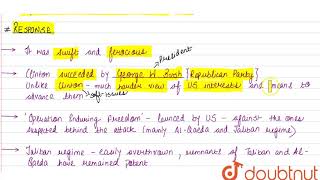 * RESPONSE
→ It was swift and ferocious
President
→ Clinton succeeded by George W. Bush [Republican Party]
Unlike Clinton - much harder view of US interests and means to
advance them → off-issues
→ 'Operation Enduring Freedom' - launced by US - against the ones
suspected behind the attack (mainly Al-Qaeda and Taliban regime)
→ Taliban regime - easily overthrown, remnants of Taliban and Al-
Qaeda have remained potent
doubtnut